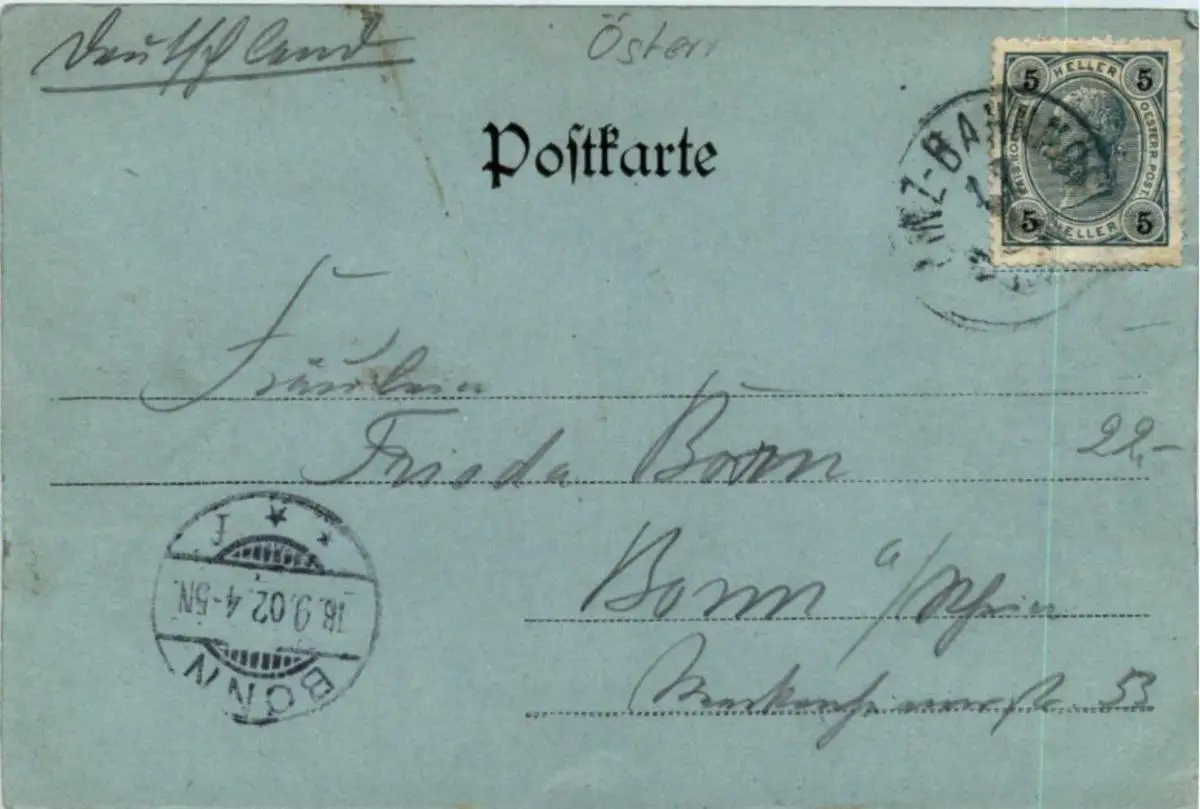 Deutschland
Österr
Postkarte
5 HELLER 5
OESTERR. POST.
5 HELLER 5
LINZ-BAHNHOF
Fräulein
Frieda Born
22,-
Bonn a/Rhein
53
BONN
18.9.02.4-5N.
f